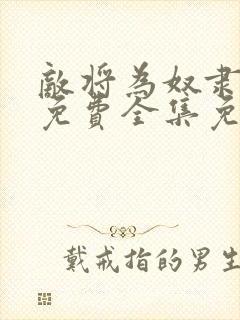 敵將為奴隶
免費全集免
戴戒指的男生